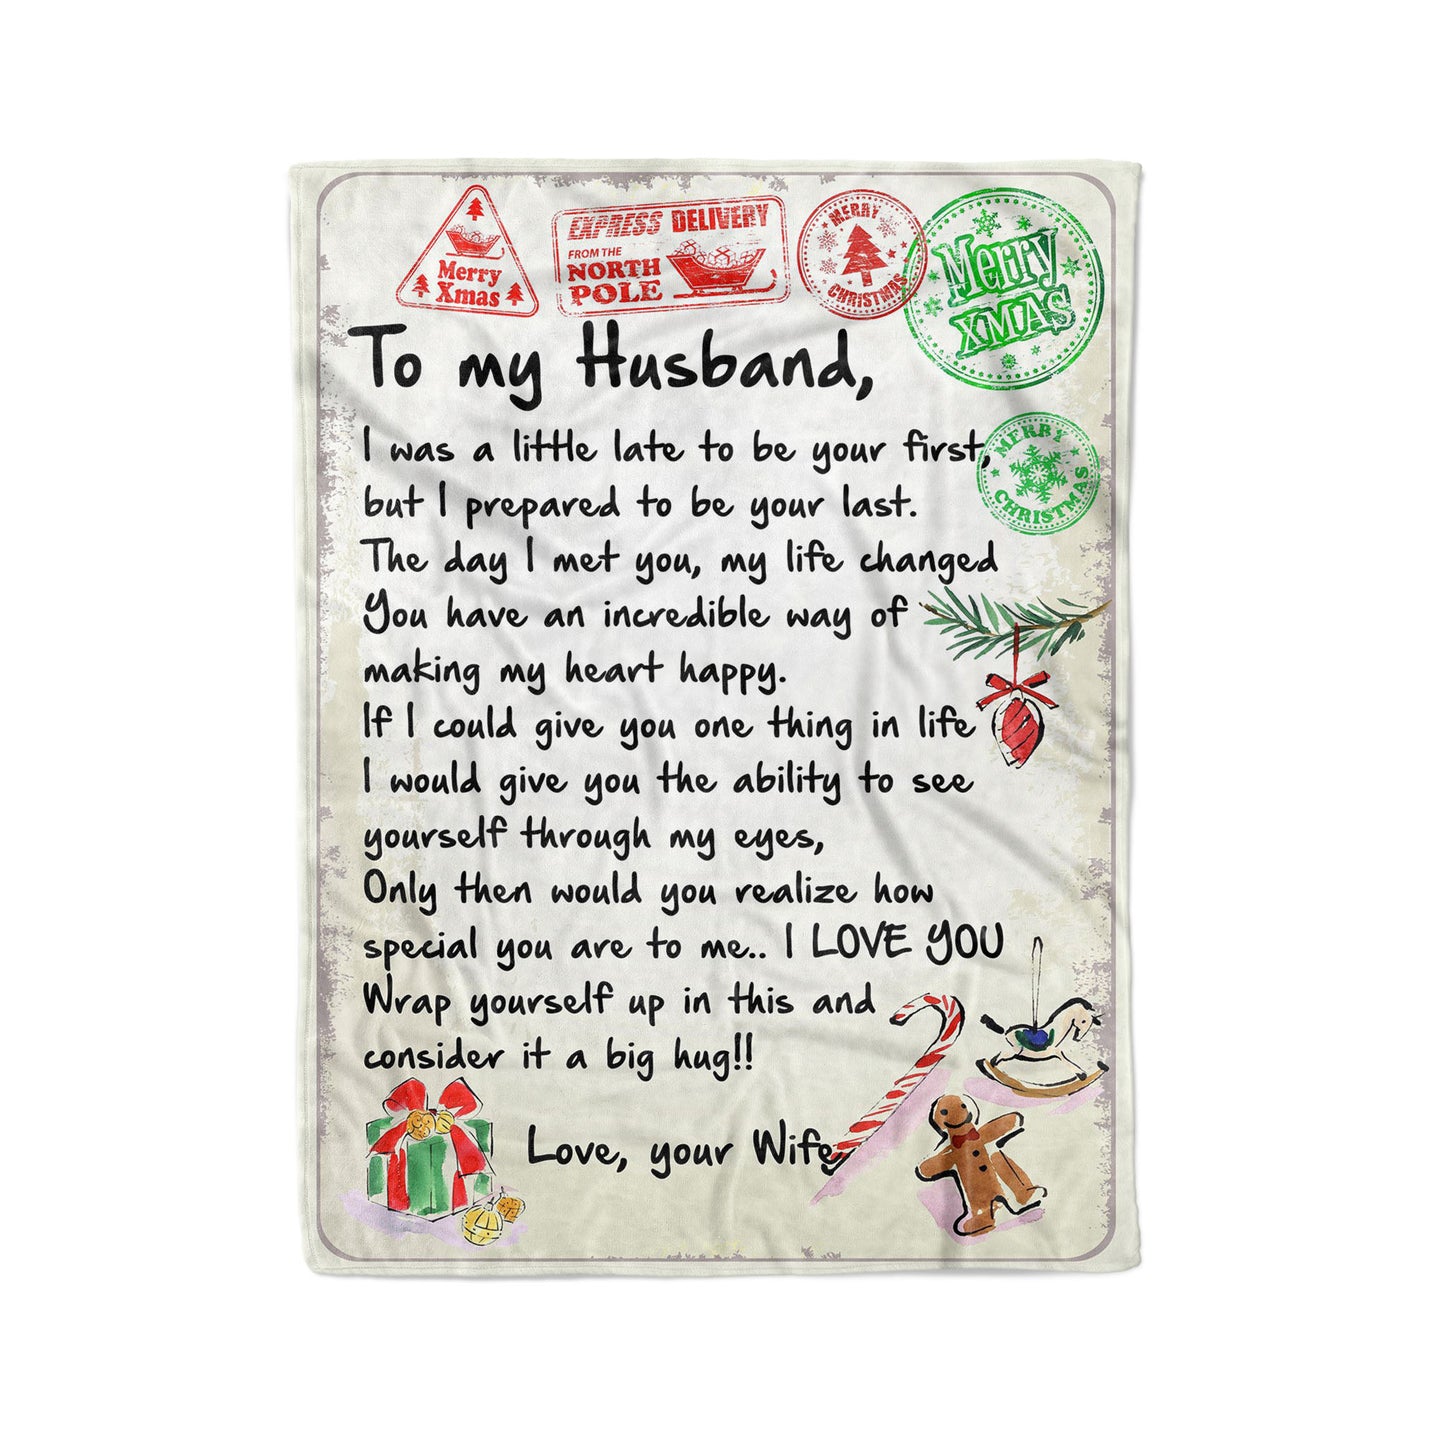 Merry
Xmas
EXPRESS DELIVERY
FROM THE
NORTH
POLE
MERRY
CHRISTMAS
Merry
XMAS
To my Husband,
MERRY
CHRISTMAS
I was a little late to be your first,
but I prepared to be your last.
The day I met you, my life changed
You have an incredible way of
making my heart happy.
If I could give you one thing in life
I would give you the ability to see
yourself through my eyes,
Only then would you realize how
special you are to me.. I LOVE YOU
Wrap yourself up in this and
consider it a big hug!!
Love, your Wife